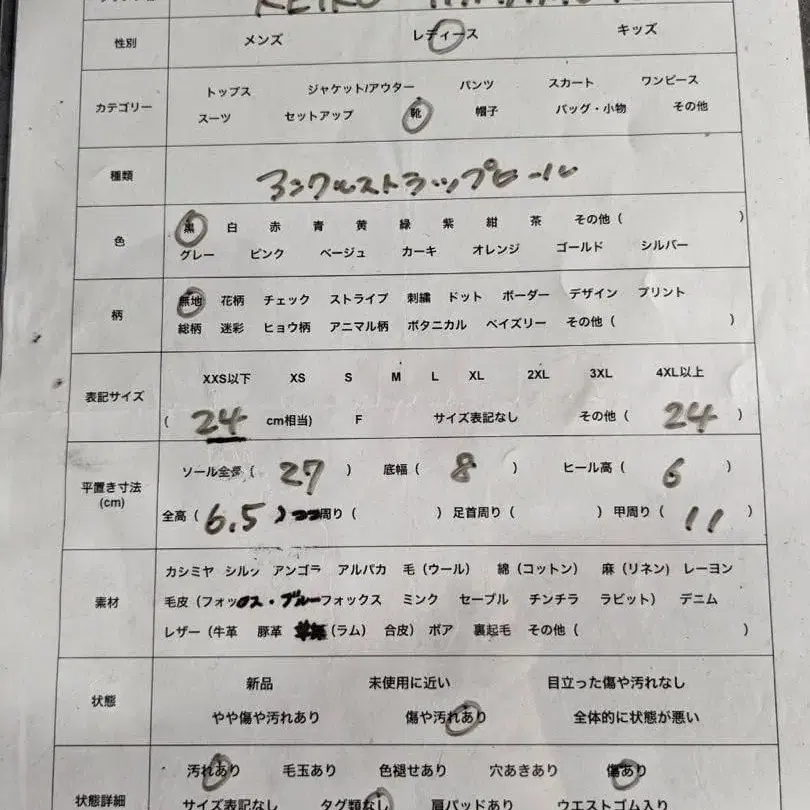 性別 メンズ レディース キッズ
トップス ジャケット/アウター パンツ スカート ワンピース
カテゴリー
スーツ セットアップ 靴 帽子 バッグ・小物 その他
種類 アンクルストラップヒール
黒 白 赤 青 黄 緑 紫 紺 茶 その他 ( )
色
グレー ピンク ベージュ カーキ オレンジ ゴールド シルバー
無地 花柄 チェック ストライプ 刺繍 ドット ボーダー デザイン プリント
柄
総柄 迷彩 ヒョウ柄 アニマル柄 ボタニカル ペイズリー その他 ( )
XXS以下 XS S M L XL 2XL 3XL 4XL以上
表記サイズ
( 24 cm相当) F サイズ表記なし その他 ( 24 )
ソール全長 ( 27 ) 底幅 ( 8 ) ヒール高 ( 6 )
平置き寸法
(cm)
全高 ( 6.5 ) 周り ( ) 足首周り ( ) 甲周り ( 11 )
カシミヤ シルク アンゴラ アルパカ 毛 (ウール) 綿 (コットン) 麻 (リネン) レーヨン
素材
毛皮 (フォックス・ブルーフォックス ミンク セーブル チンチラ ラビット) デニム
レザー (牛革 豚革 (ラム) 合皮) ボア 裏起毛 その他 ( )
新品 未使用に近い 目立った傷や汚れなし
状態
やや傷や汚れあり 傷や汚れあり 全体的に状態が悪い
汚れあり 毛玉あり 色褪せあり 穴あきあり 傷あり
状態詳細
サイズ表記なし タグ類なし 肩パッドあり ウエストゴム入り